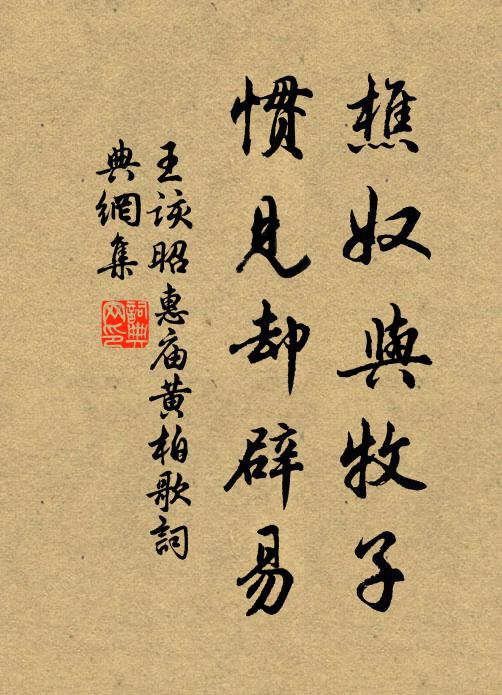 樵奴與牧子
慣見却辟易
王該昭惠庙黄柏歌詞
典網集
詞典
网印